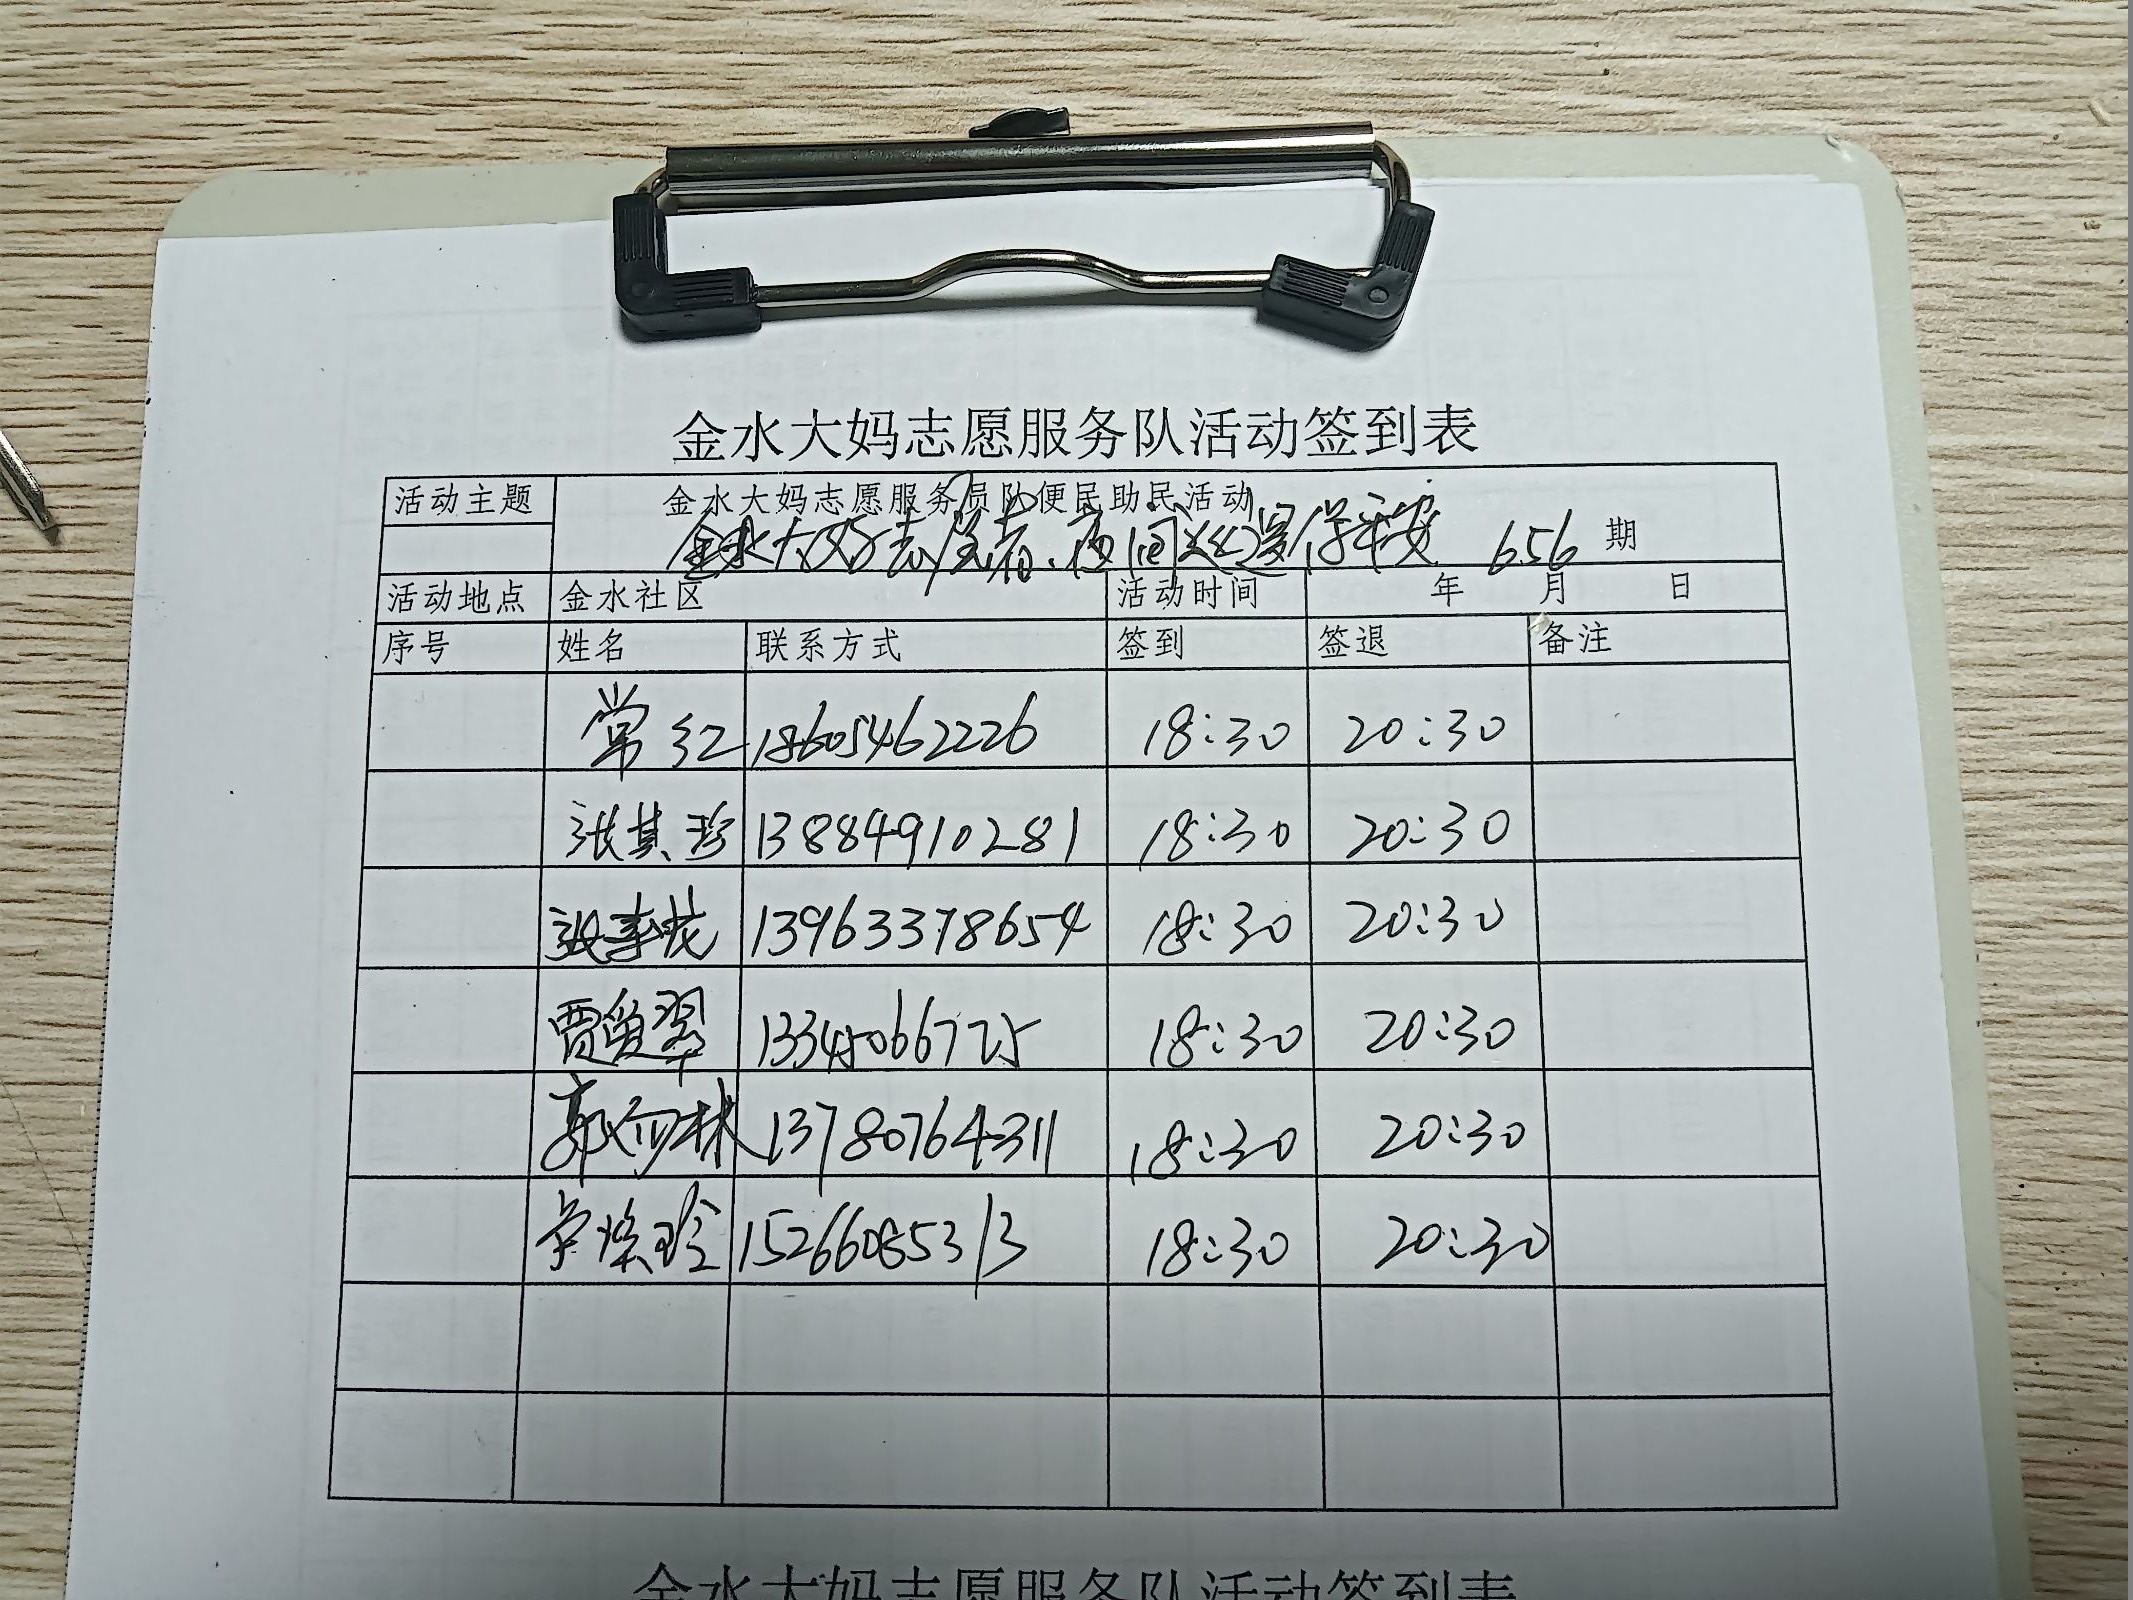 金水大妈志愿服务队活动签到表
活动主题 金水大妈志愿服务员队便民助民活动
金水大妈志愿者、夜间巡逻保平安 656 期
活动地点 金水社区 活动时间 年 月 日
序号 姓名 联系方式 签到 签退 备注
常红 18605462226 18:30 20:30
张其珍 13884910281 18:30 20:30
张 13963378654 18:30 20:30
贾爱翠 18:30 20:30
郭向林 13780764311 18:30 20:30
焕玲 15266085313 18:30 20:30
金水大妈志愿服务队活动签到表